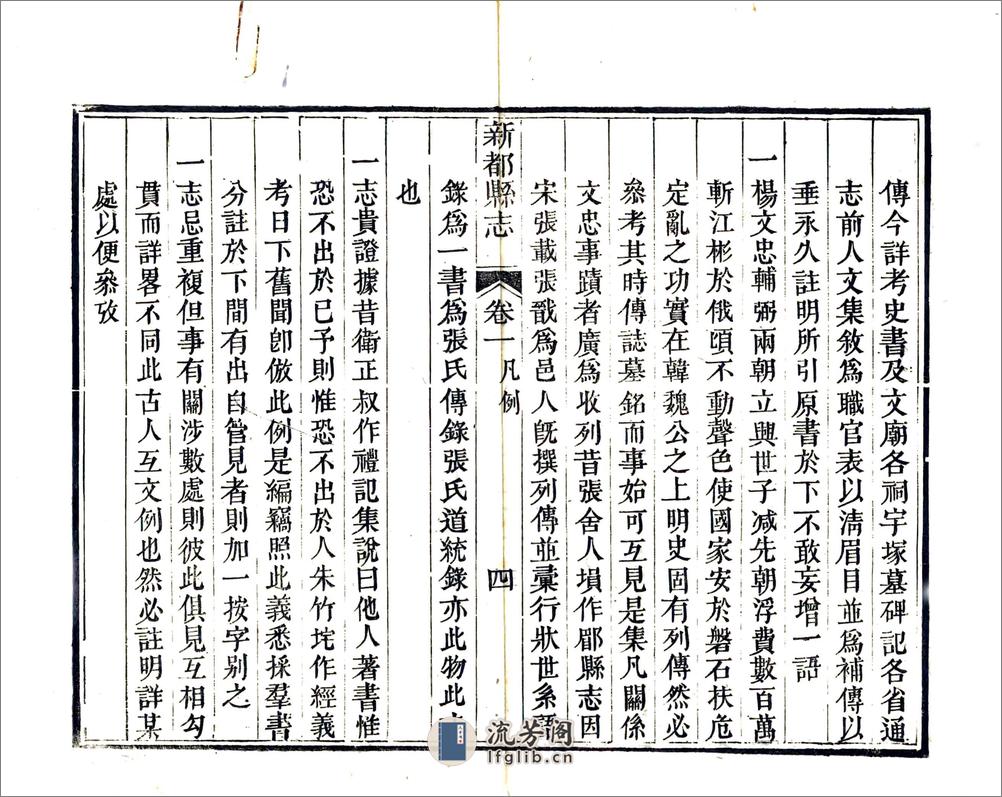 傳今詳考史書及文廟各祠宇塚墓碑記各省通
志前人文集敘爲職官表以淸眉目並爲補傳以
垂永久註明所引原書於下不敢妄增一語
一楊文忠輔弼兩朝立興世子减先朝浮費數百萬
斬江彬於俄頃不動聲色使國家安於磐石扶危
定亂之功實在韓魏公之上明史固有列傳然必
叅考其時傳誌墓銘而事始可互見是集凡關係
文忠事蹟者廣爲收列昔張舍人塤作郿縣志因
宋張載張戩爲邑人旣撰列傳並彚行狀世系語
新都縣志 卷一 凡例 四
錄爲一書爲張氏傳錄張氏道統錄亦此物此
也
一志貴證據昔衛正叔作禮記集說曰他人著書惟
恐不出於已予則惟恐不出於人朱竹垞作經義
考日下舊聞卽倣此例是編竊照此義悉採羣書
分註於下間有出自管見者則加一按字别之
一志忌重複但事有關涉數處則彼此俱見互相勾
貫而詳畧不同此古人互文例也然必註明詳某
處以便叅攷
流芳閣
lfglib.cn